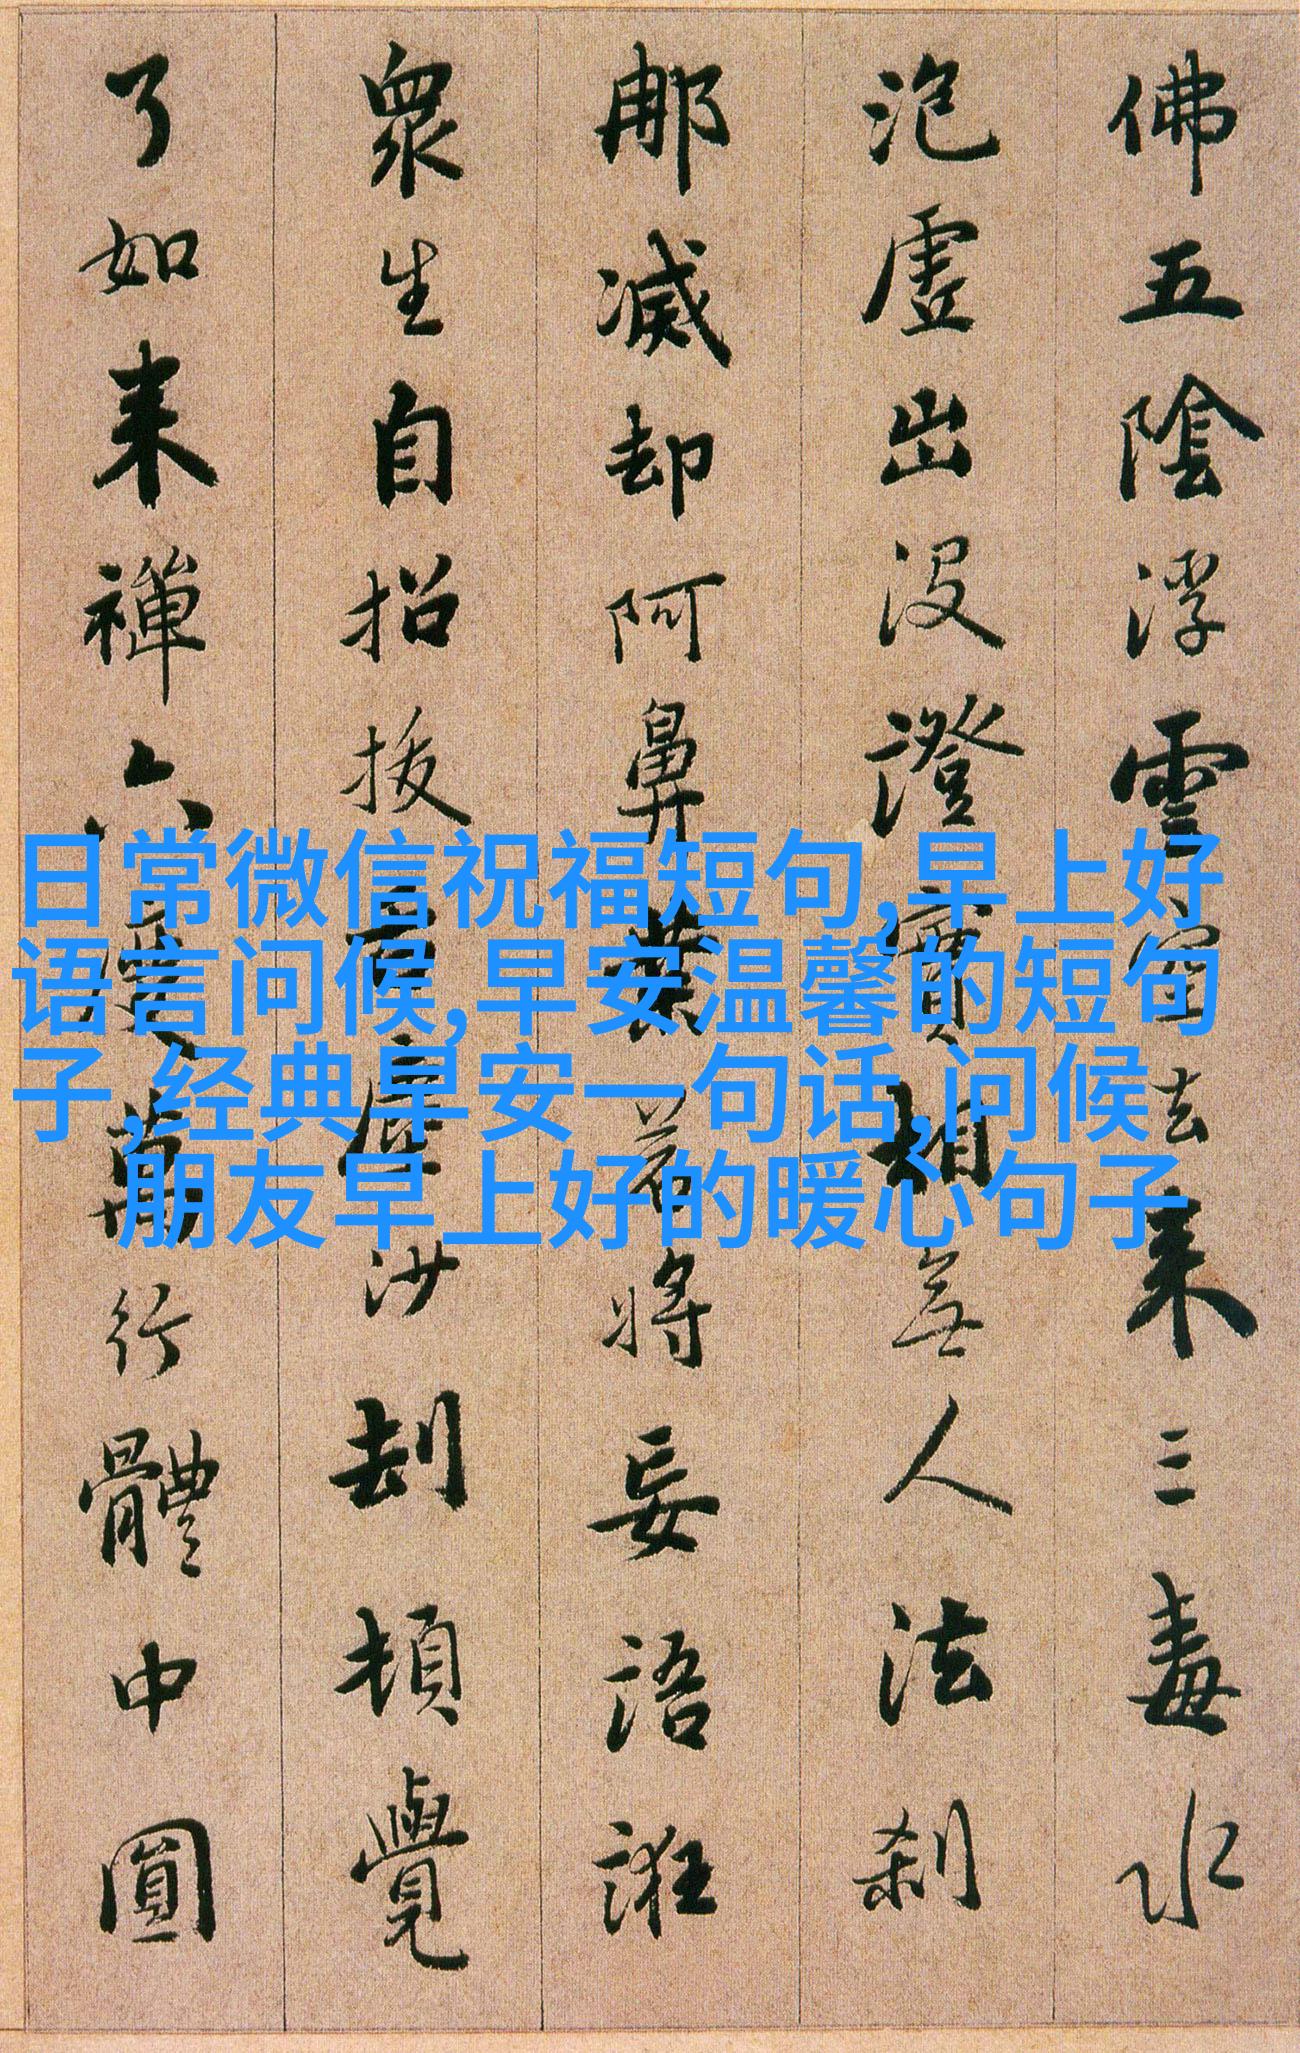 佛五陰浮雲空去来三毒水
泡虚出没證實相無人法刹
那滅却阿鼻業若将妄語誑
衆生自招拔舌塵沙劫頓覺
了如来禪六度萬行體中圓
日常微信祝福短句,早上好
语言问候,早安温馨的短句
子,经典早安一句话,问候
朋友早上好的暖心句子